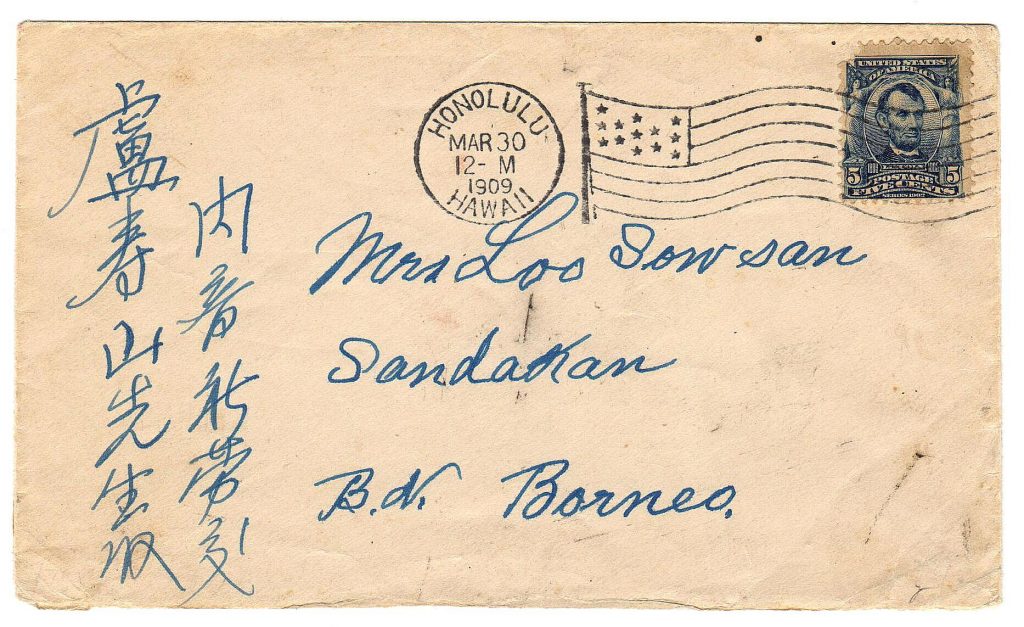 HONOLULU
MAR 30
12- M
1909
HAWAII
UNITED STATES
OF AMERICA
5 POSTAGE 5
FIVE CENTS
SERIES 1902
Mrs Loo Sow san
Sandakan
B.N. Borneo.
内音祈
盧寿山先生收